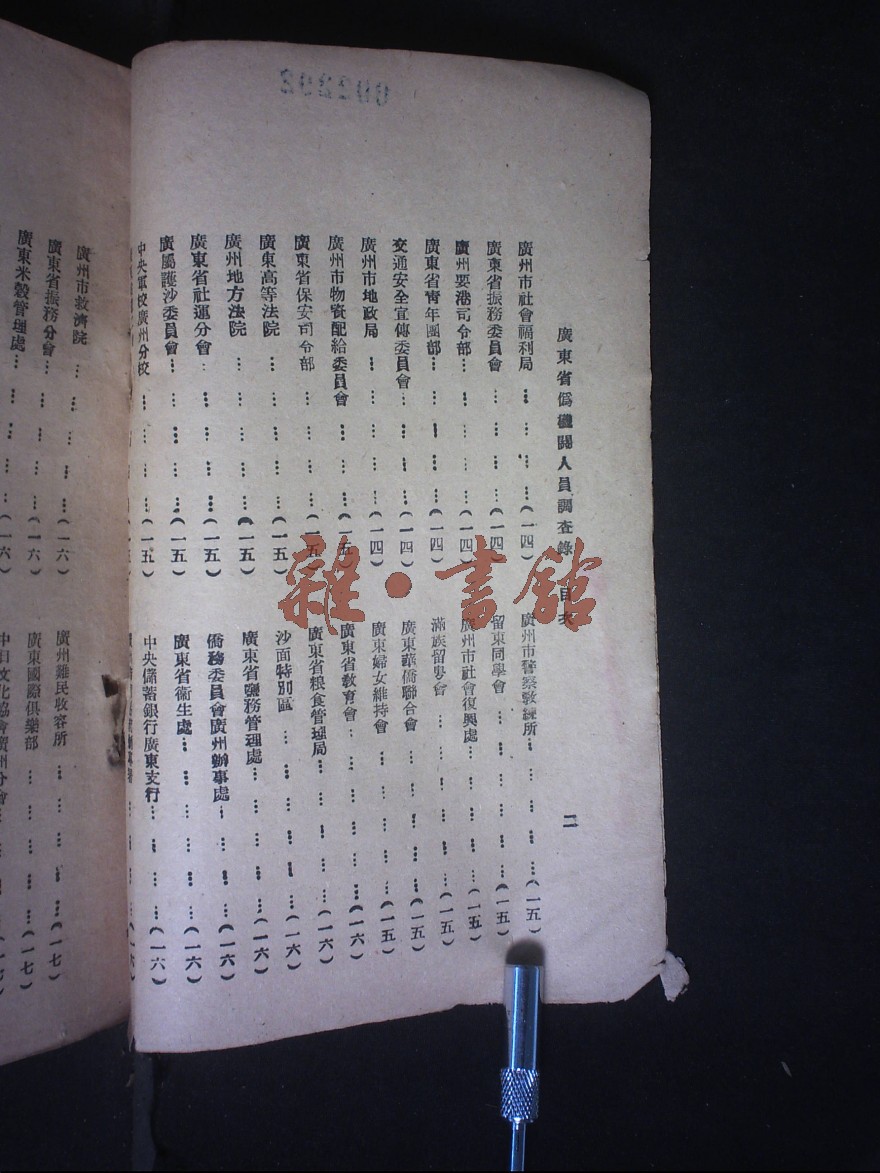 廣東省僞機關人員調查錄 目次 二
廣州市社會福利局 … … … …（一四）
廣東省振務委員會 … … … …（一四）
廣州要港司令部 … … … …（一四）
廣東省靑年團部 … … … …（一四）
交通安全宣傳委員會 … … …（一四）
廣州市地政局 … … … … …（一四）
廣州市物資配給委員會 … … …（一五）
廣東省保安司令部 … … … …（一五）
廣東高等法院 … … … … …（一五）
廣州地方法院 … … … … …（一五）
廣東省社運分會 … … … …（一五）
廣屬護沙委員會 … … … …（一五）
中央軍校廣州分校 … … … …（一五）
廣州市警察教練所 … … … …（一五）
留東同學會 … … … … …（一五）
廣州市社會復興處 … … … …（一五）
滿族留粵會 … … … … …（一五）
廣東華僑聯合會 … … … …（一五）
廣東婦女維持會 … … … …（一五）
廣東省教育會 … … … … …（一六）
廣東省粮食管理局 … … … …（一六）
沙面特別區 … … … … …（一六）
廣東省鹽務管理處 … … … …（一六）
僑務委員會廣州辦事處 … … …（一六）
廣東省衞生處 … … … … …（一六）
中央儲蓄銀行廣東支行 … … …（一六）
廣州市救濟院 … … … … …（一六）
廣東省振務分會 … … … …（一六）
廣東米穀管理處 … … … …（一六）
廣州難民收容所 … … … …（一七）
廣東國際俱樂部 … … … …（一七）
中日文化協會廣州分會
雜·書館
002292